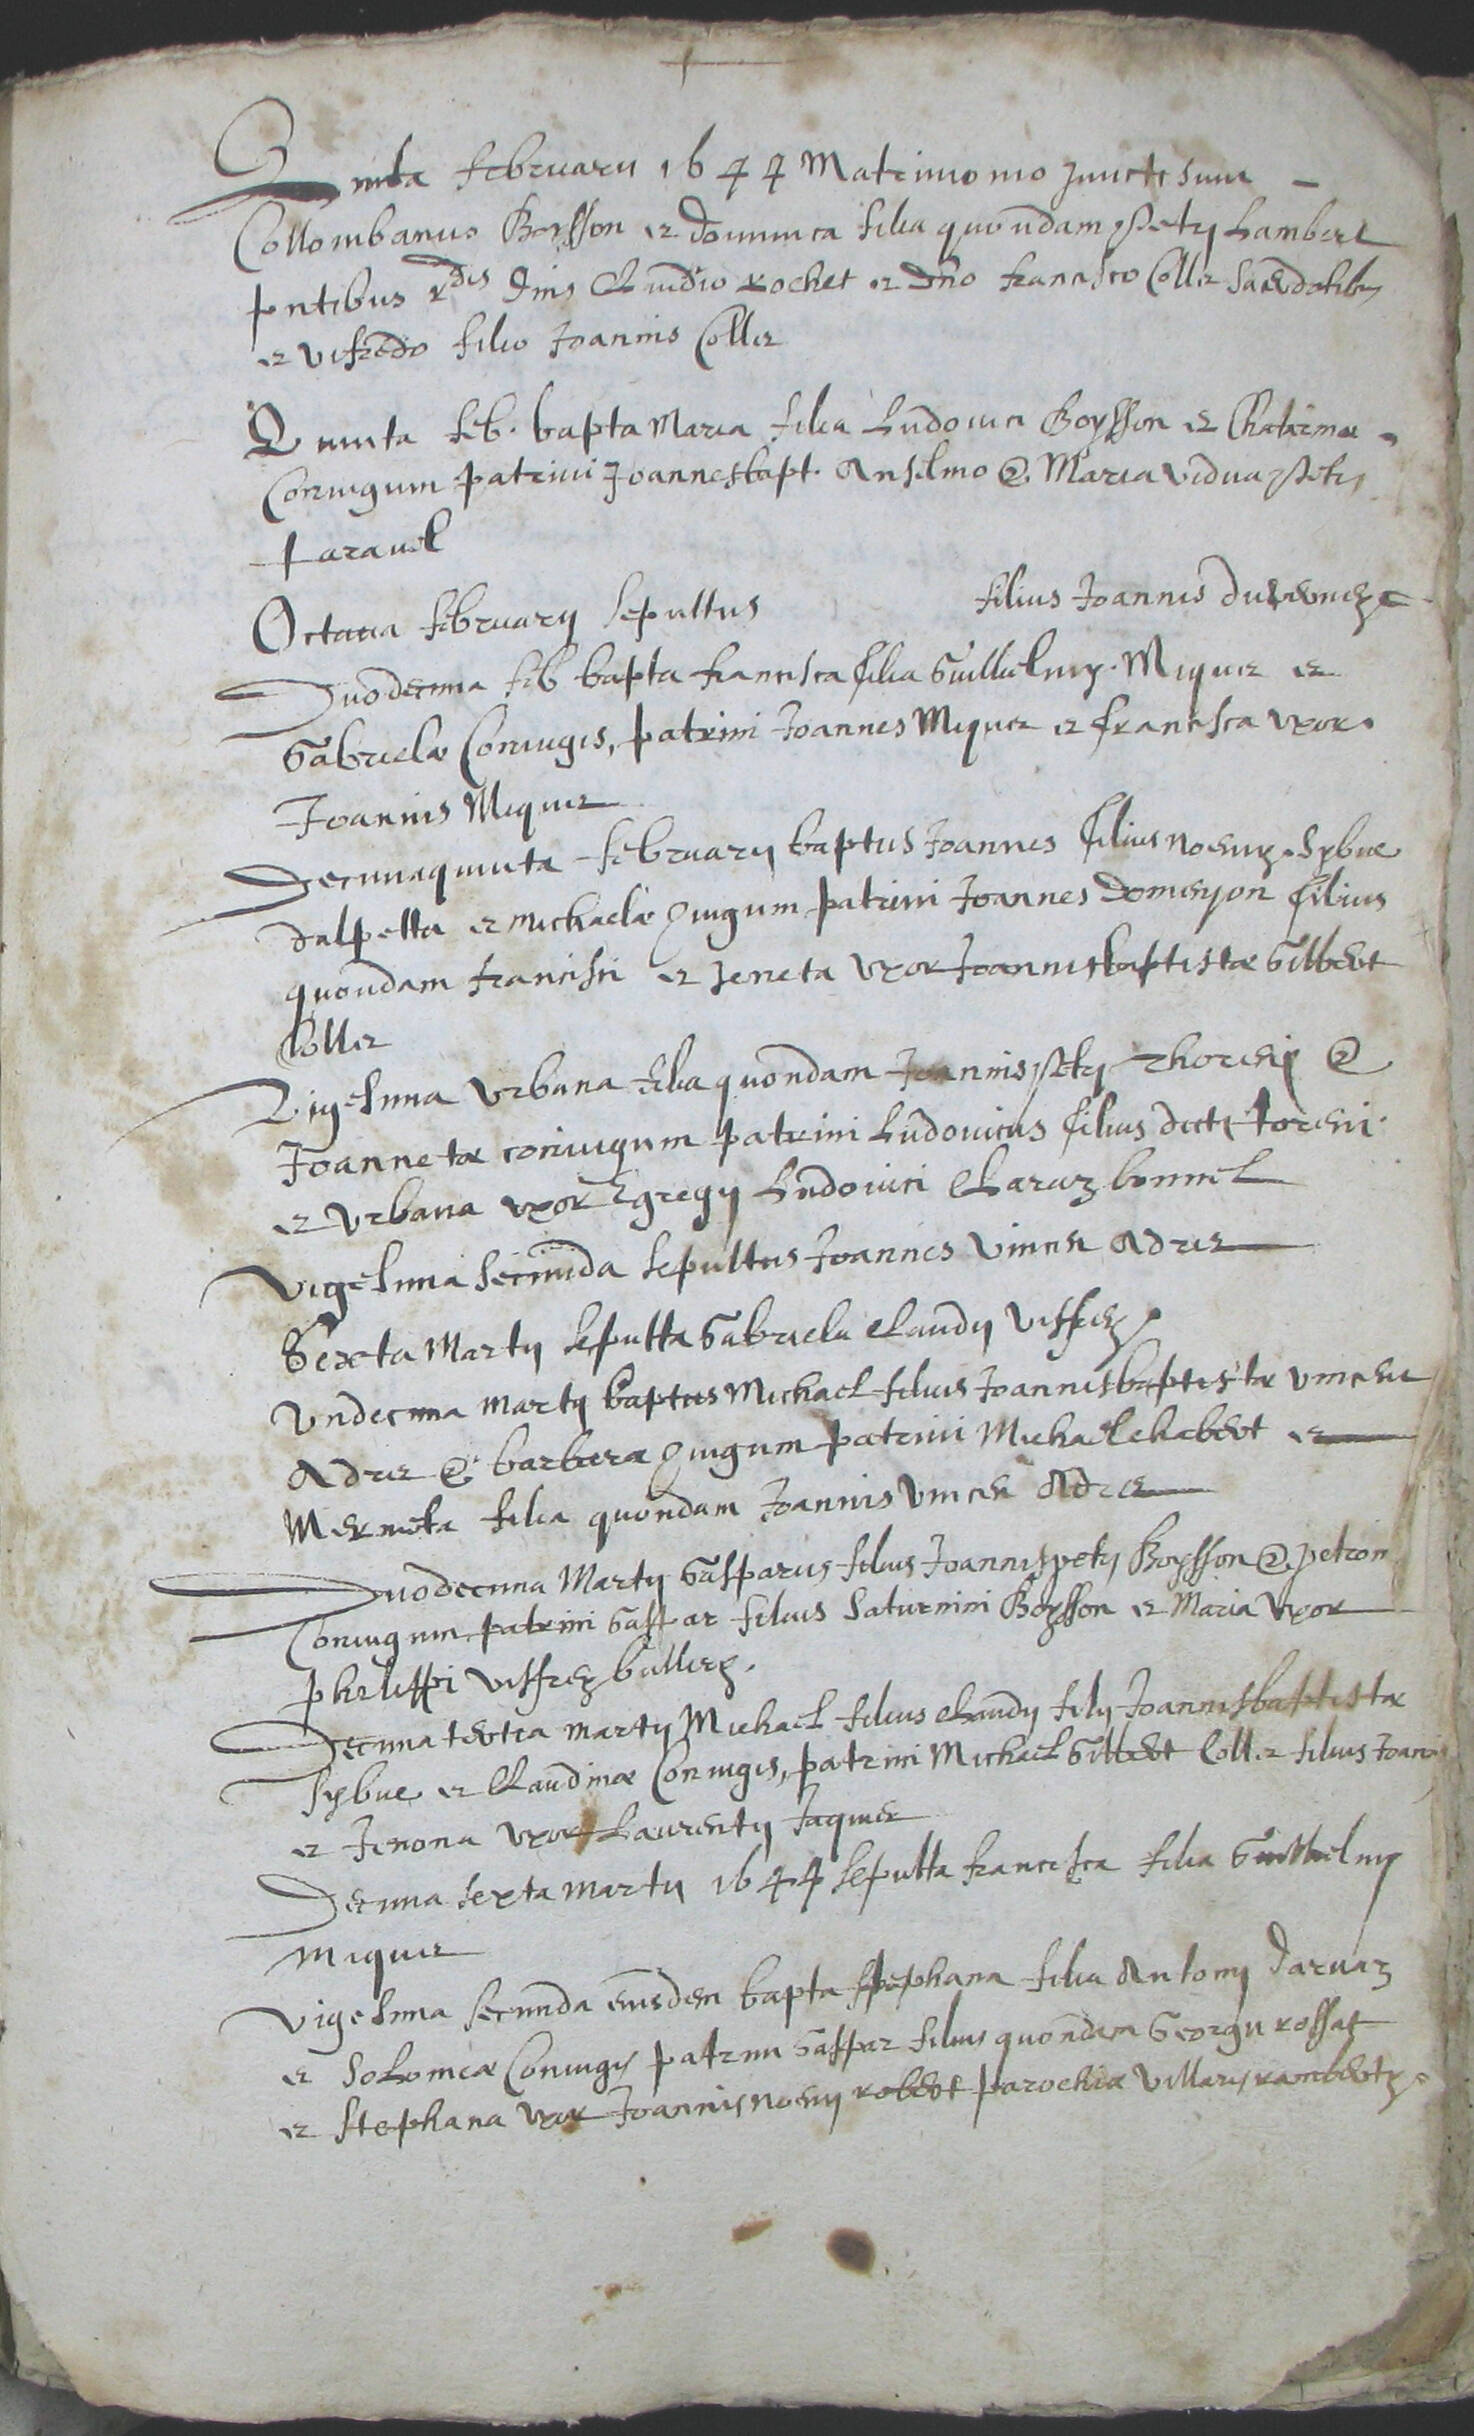 Quinta februarii 1644 Matrimonio juncti sunt
Collombanus Boysson et dominica filia quondam Petri Lambert
pntibus Rdis Dnis Claudio rochet et Dno francisco Collet sacerdotibus
et vifredo filio Joannis Collet
Quinta feb. bapta Maria filia Ludovici Boysson et Chatarinae
Coniugum patrini Joannesbapt. Anselmo et Maria vidua Petri
faravel
Octava february sepultus filius Joannis
Duodecima feb bapta francisca filia Guillielmi Miquet et
Gabrielae Coniugis, patrini Joannes Miquet et francisca uxor
Joannis Miquet
Decimaquinta february baptus Joannes filius noeni Sybue
dalpetta et Michaelae Coniugum patrini Joannes Domenjon filius
quondam francisci et Jeneta uxor Joannisbaptistae Gilbert
Collet
Vigesima Urbana filia quondam Joannispetri et
Joannetae coniugum patrini Ludovicus filius dicti
et Urbana uxor Egregy Ludovici Claraz bonnel
Vigesima secunda sepultus Joannes Vincen Adret
Sexta Marty sepulta Gabriela Claudy Viffrey
Undecima marty baptus Michael filius Joannisbaptistae Vincen
Adret et barberae Coniugum patrini Michael chabert et
Mermeta filia quondam Joannis Vincen Adret
Duodecima Marty Gasparus filius Joannispetri Boysson et petron
Coniugum patrini Gaspar filius Saturnini Boysson et Maria uxor
philippi Viffrey
Decima tertia marty Michael filius Claudy fily Joannisbaptistae
Sybue et Claudinae Coniugis, patrini Michael Gilbert Collet filius Joannis
et Jenona uxor Laurenty Jaquet
Decima sexta marty 1644 sepulta francisca filia Guillielmi
Miquet
Vigesima secunda eiusdem bapta stephana filia Antony darvaz
et Solomeae Coniugis patrini Gaspar filius quondam Georgii rossat
et Stephana uxor Joannisnoeny robert parochiae Villarijramberti